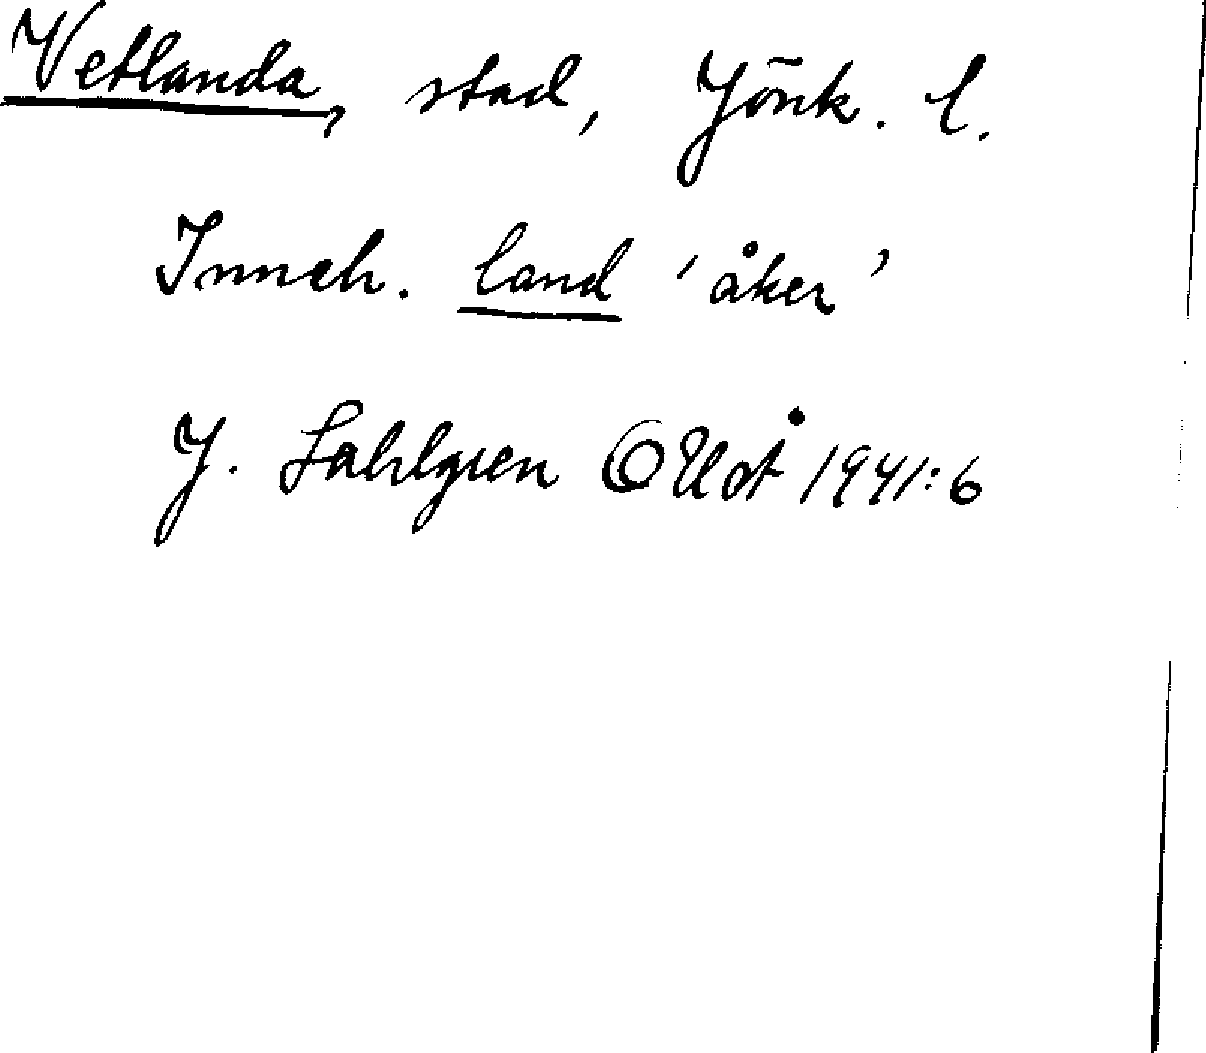 Vetlanda, stad, Jönk. l.
Inneh. land 'åker'
J. Sahlgren OUÅ 1941:6